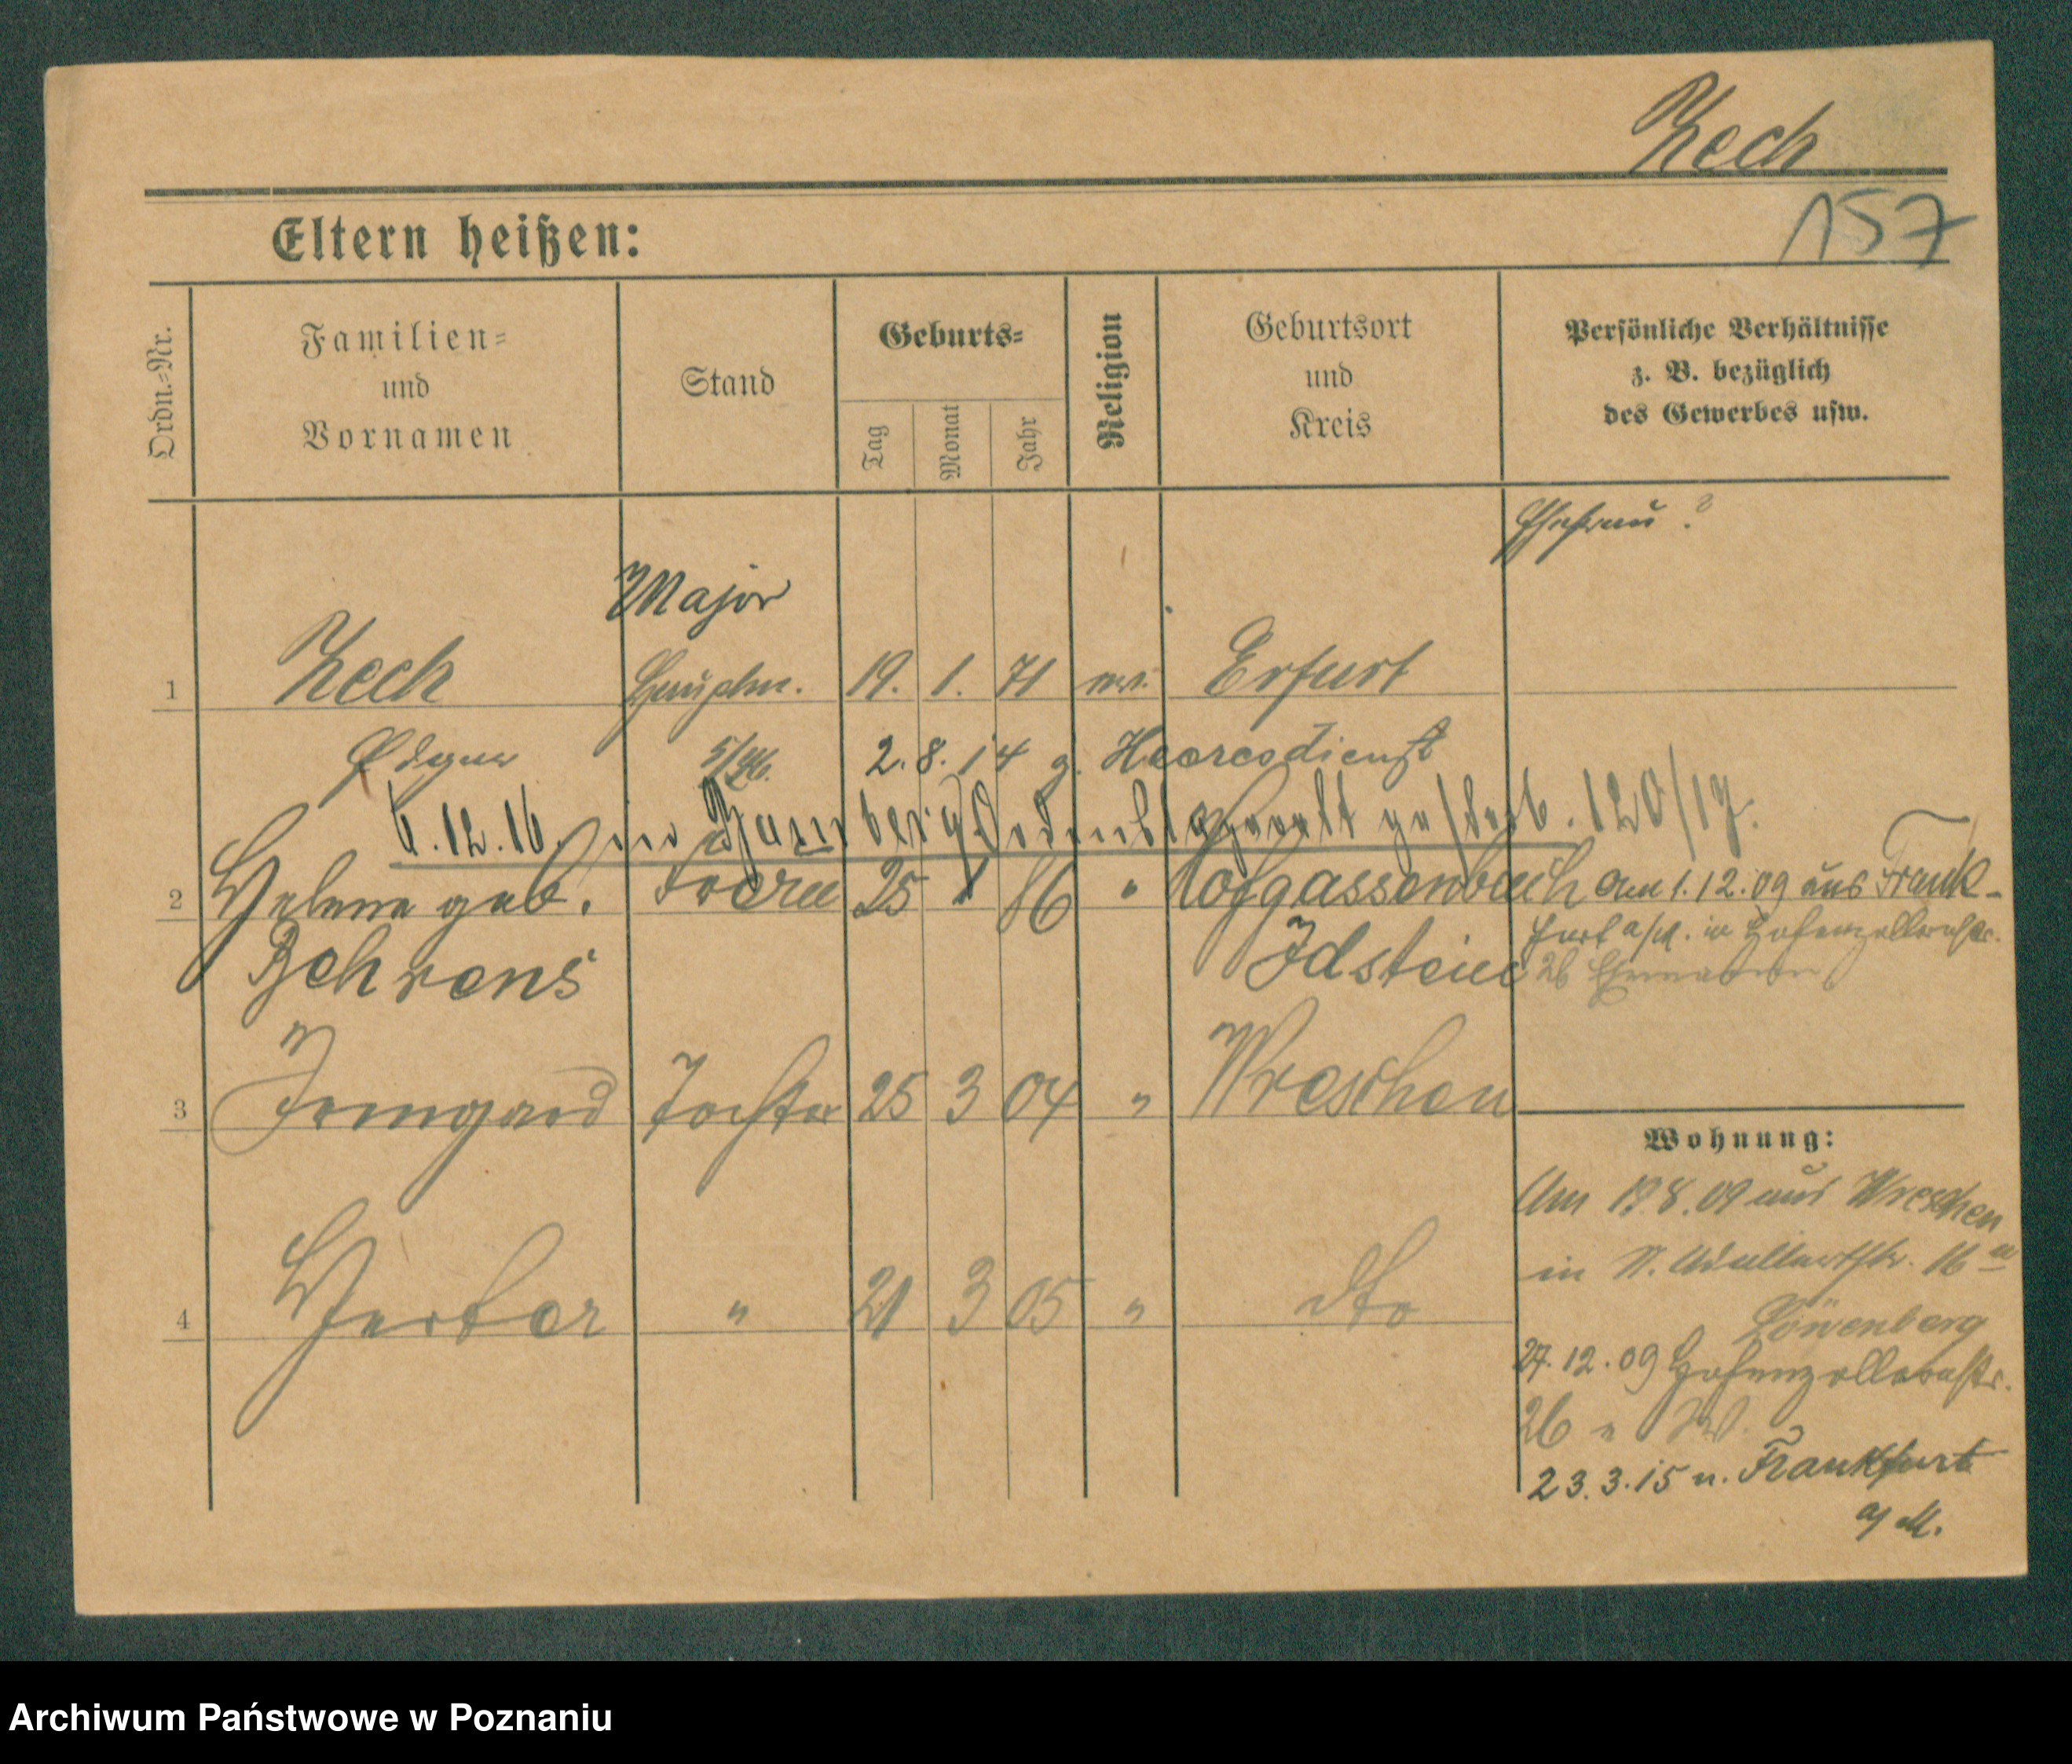 Zech
157
Eltern heißen:
Ordn.=Nr.
Familien=
und
Vornamen
Stand
Geburts=
Tag
Monat
Jahr
Religion
Geburtsort
und
Kreis
Persönliche Verhältnisse
z. B. bezüglich
des Gewerbes usw.
Ehefrau ?
Major
1 Zech Hauptm. 19. 1. 71 Erfurt
5/46. 2.8.14 z. Heeresdienst
6.12.16. in gestorb. 120/17.
2 Helene geb. Frau 25 1 86 " am 1.12.09 aus Frank-
Behrens Idstein
furt a/M. in Hohenzollernstr.
26 Ehemann
3 Irmgard Tochter 25 3 04 " Wreschen
Wohnung:
Am 8.09 aus Wreschen
in 16a
4 " 21 3 05 " dto
Löwenberg
27.12.09 Hohenzollernstr.
26
23.3.15 n. Frankfurt
a/M.
Archiwum Państwowe w Poznaniu